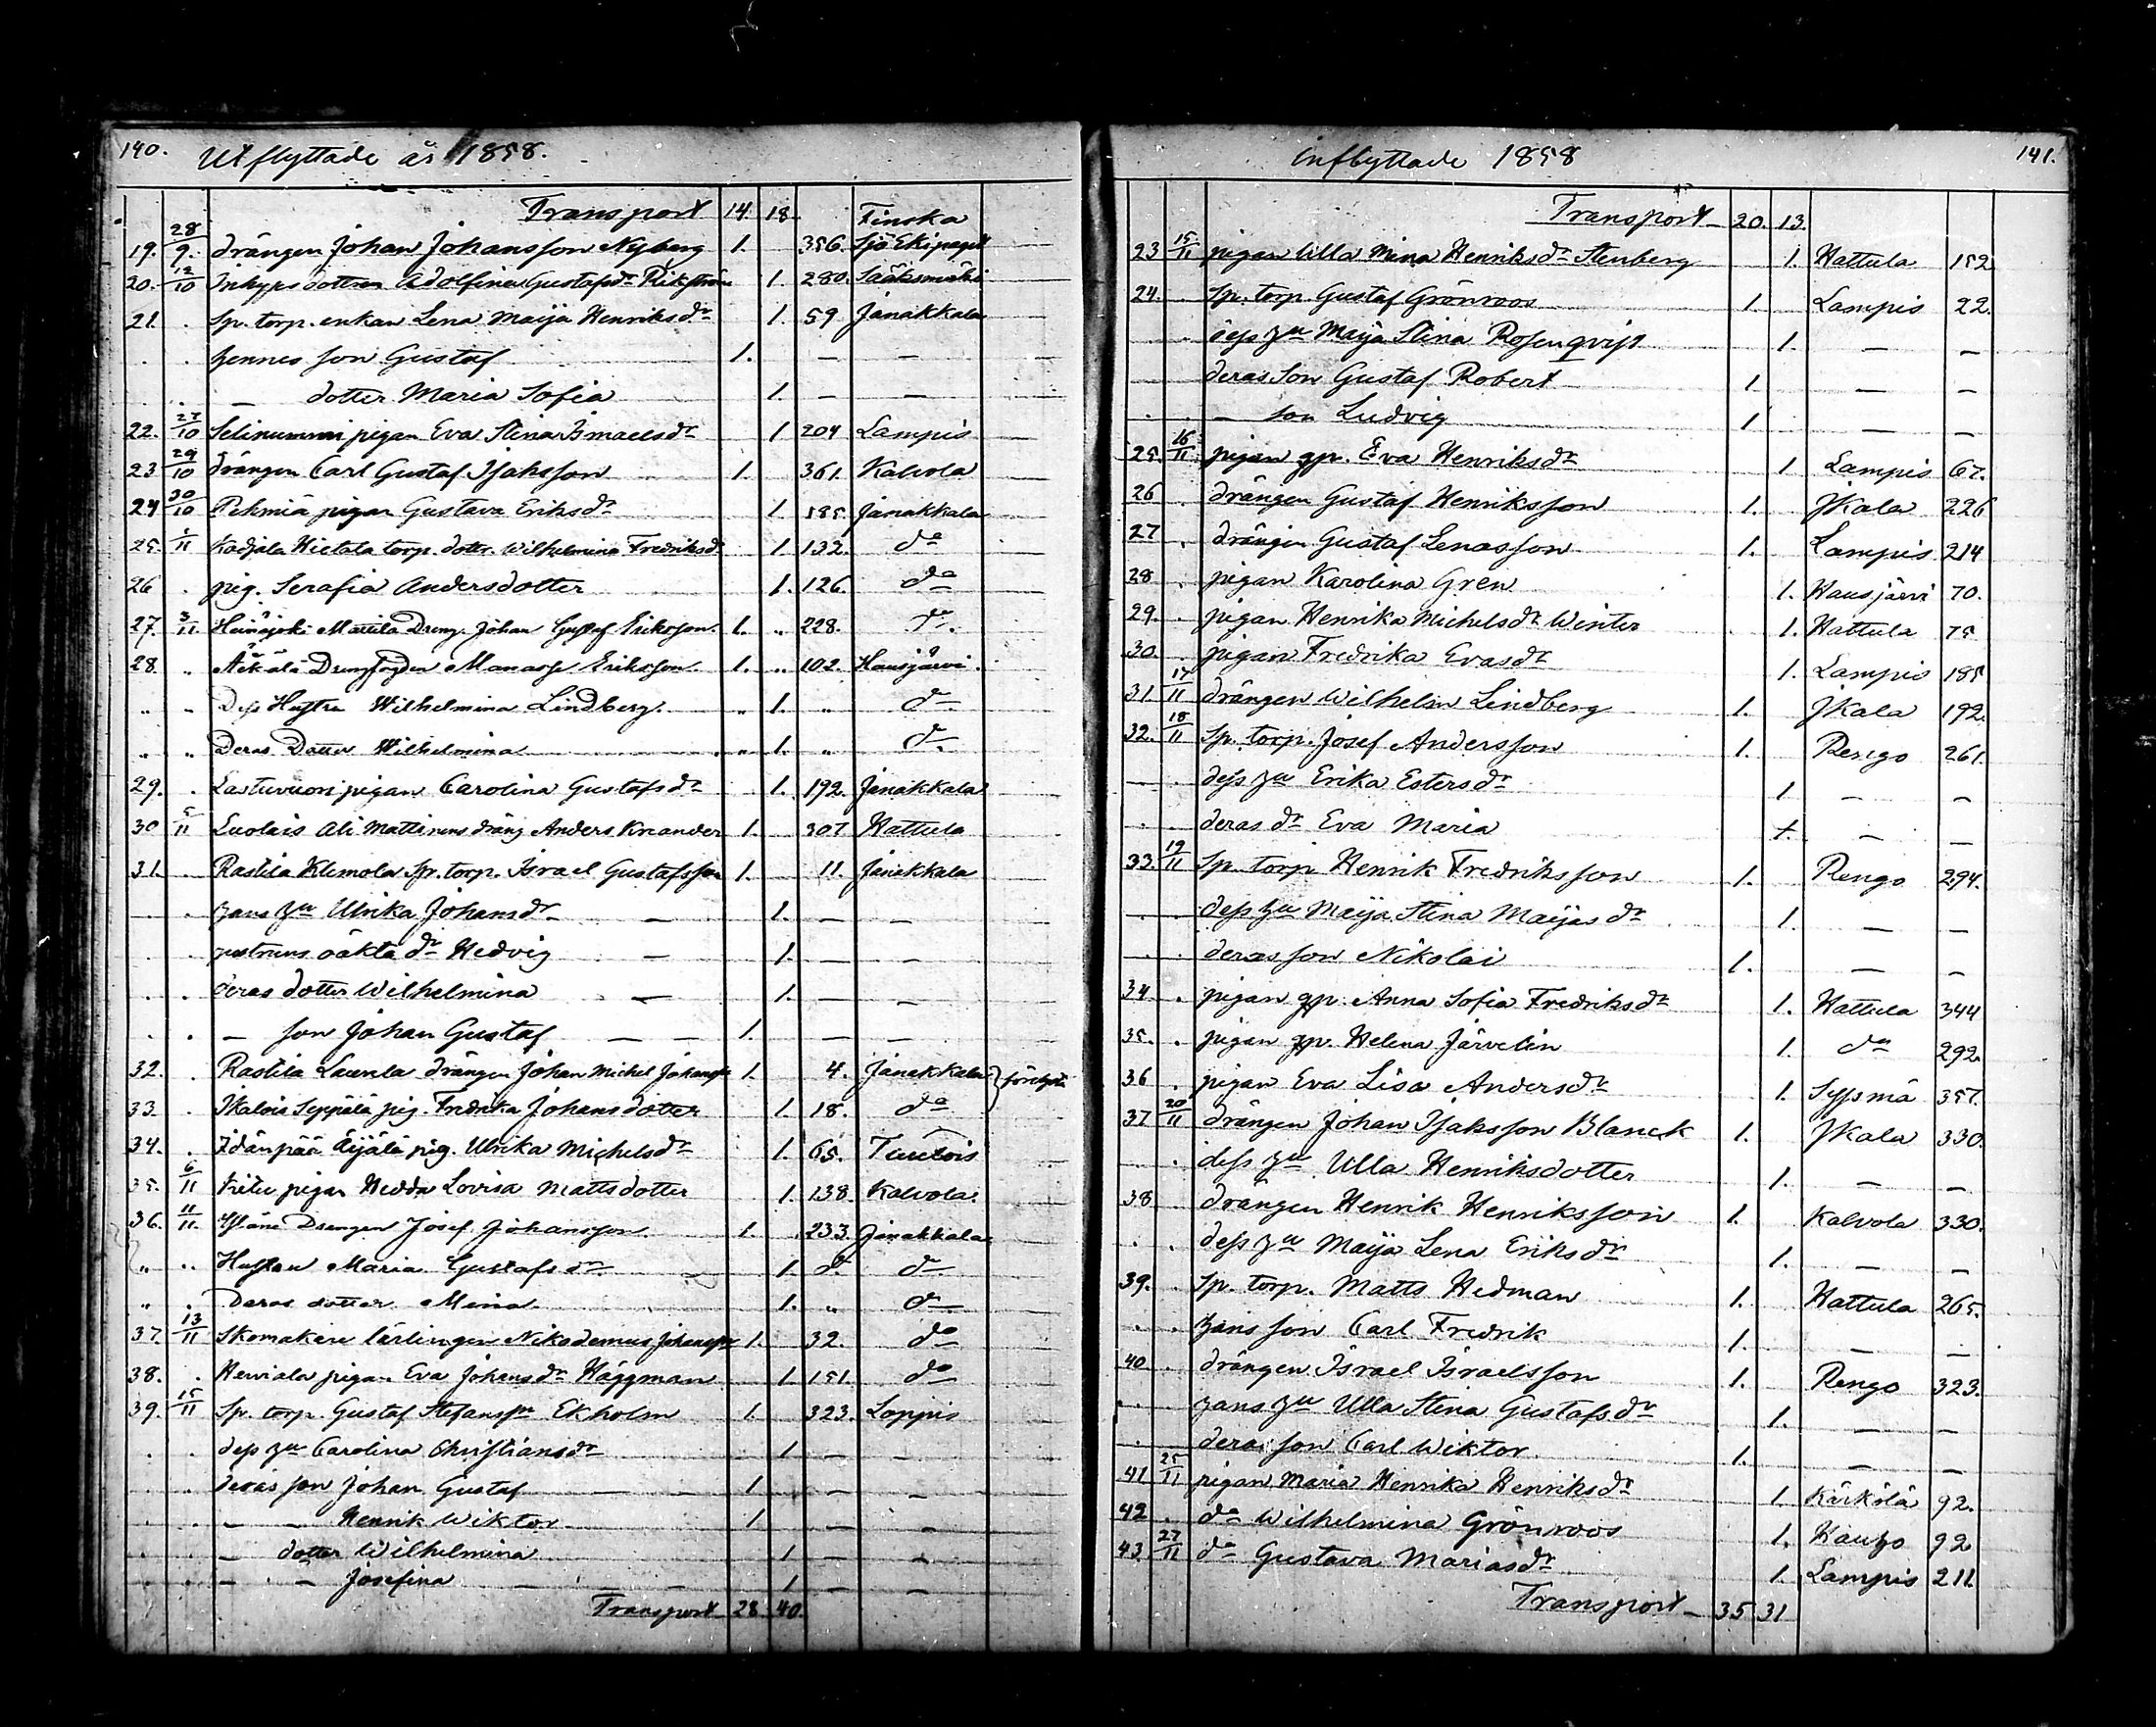 140. Utflyttade år 1858.
Transport 14 18. Finska
19. 28/9. drängen Johan Johansson Nyberg 1. 356. Sjö Ekipaget
20. 12/10 Inhyses dottren Adolfina Gustafsdr 1. 280. Sääksmäki
21. . Sp. torp. enkan Lena Maija Henriksdr 1. 59 Janakkala
. . hennes son Gustaf 1. — —
. — dotter Maria Sofia 1. — —
22. 27/10 pigan Eva Stina Ismaelsdr 1 204 Lampis
23 29/10 drängen Carl Gustaf Isaksson 1. 361. Kalvola
24 30/10 pigan Gustava Eriksdr 1. 185. Janakkala
25. 1/11 Kadjala Hietala torp. dottr. Wilhelmina Fredriksd. 1 132. do
26 . pig. Serafia Andersdotter 1. 126. do
27. 3/11 Heinäjoki Mattila Dreng. Johan Gustaf Eriksson. 1. „ 228. do.
28. „ Drengfogden Manasse Eriksson. 1. „ 102. Hausjärvi.
„ „ Dess Hustru Wilhelmina Lindberg. „ 1. „ do
„ „ Deras Dotter Wilhelmina „ 1. „ do.
29. . pigan Carolina Gustafsdr 1. 192. Janakkala
30 5/11 Luolais Ali Mattinens dräng Anders Kreander 1. 307 Hattula
31. . Rastila Klemola Sp. torp. Israel Gustafsson 1. 11. Janakkala
. . hans hu Ulrika Johansdr — 1. — —
. . hustruns oäkta dr Hedvig — 1. — —
. . deras dotter Wilhelmina — 1. — —
. . — son Johan Gustaf — — 1. — —
32. . Rastila Laurela drängen Johan Michel Johansson 1. 4. Janakkala
33. . Seppälä pig. Fredrika Johansdotter 1. 18. do
34. . Idänpää Äijälä pig. Ulrika Michelsdr 1. 65. Tuulois
35. 6/11 pigan Hedda Lovisa Mattsdotter 1. 138. Kalvola.
36. 11/11. Drengen Josef Johansson. 1. 233. Janakkala
„ „ Hustrun Maria Gustafsdr 1. do do
„ . Deras dotter Mina. 1. „ do
37. 13/11 Skomakare lärlingen Nikodemus Johansson 1. 32. do
38. . Herviala pigan Eva Johansdr Häggman 1. 151. do
39. 15/11 Sp. torp. Gustaf Stefansson Ekholm 1. 323. Loppis
. . dess hu Carolina Christiansdr 1 — —
. . deras son Johan Gustaf 1 — —
. . — — Henrik Wiktor 1 — —
. . — dotter Wilhelmina 1 — —
. . — — Josefina 1 — —
Transport 28 40.
Inflyttade 1858 141.
Transport 20. 13.
23 15/11 pigan Ulla Mina Henriksdr Stenberg 1. Hattula 152
24. . Sp. torp. Gustaf Grönroos 1. Lampis 22.
. dess hu Maija Stina Rosenqvist 1. — —
deras son Gustaf Robert 1. — —
. . — son Ludvig 1 — —
25. 16/11 pigan gp. Eva Henriksdr 1 Lampis 67.
26 . drängen Gustaf Henriksson 1. JKala 226
27 . drängen Gustaf Lenasson 1. Lampis 214
28 . pigan Karolina Gren 1. Hausjärvi 70.
29. . pigan Henrika Michelsdr Winter 1. Hattula 75
30. . pigan Fredrika Evasdr 1. Lampis 185
31 17/11 drängen Wilhelm Lindberg 1. JKala 192.
32. 18/11 Sp. torp. Josef Andersson 1. Rengo 261.
. dess hu Erika Estersdr 1 — —
. . deras dr Eva Maria 1. — —
33. 19/11 Sp. torp Henrik Fredriksson 1. Rengo 294.
. . dess hu Maija Stina Maijasdr 1. — —
. . deras son Nikolai 1. — —
34 . pigan gp. Anna Sofia Fredriksdr 1. Hattula 344
35. . pigan gp. Helena Järvelin 1. do 292.
36 . pigan Eva Lisa Andersdr 1. Syssmä 357.
37 20/11 drängen Johan Isaksson Blanck 1. JKala 330.
. dess hu Ulla Henriksdotter 1. — —
38 . drängen Henrik Henriksson 1. Kalvola 330.
. . dess hu Maija Lena Eriksdr 1. — —
39. . Sp. torp. Matts Hedman 1. Hattula 265.
. . hans son Carl Fredrik 1. — —
40 . drängen Israel Israelsson 1. Rengo 323.
. . hans hu Ulla Stina Gustafsdr 1. — —
. deras son Carl Wiktor 1. — —
41 25/11 pigan Maria Henrika Henriksdr 1. Kärkölä 92.
42 . do Wilhelmina Grönroos 1. Hauho 92
43 27/11 do Gustava Mariasdr 1. Lampis 211
Transport 35 31